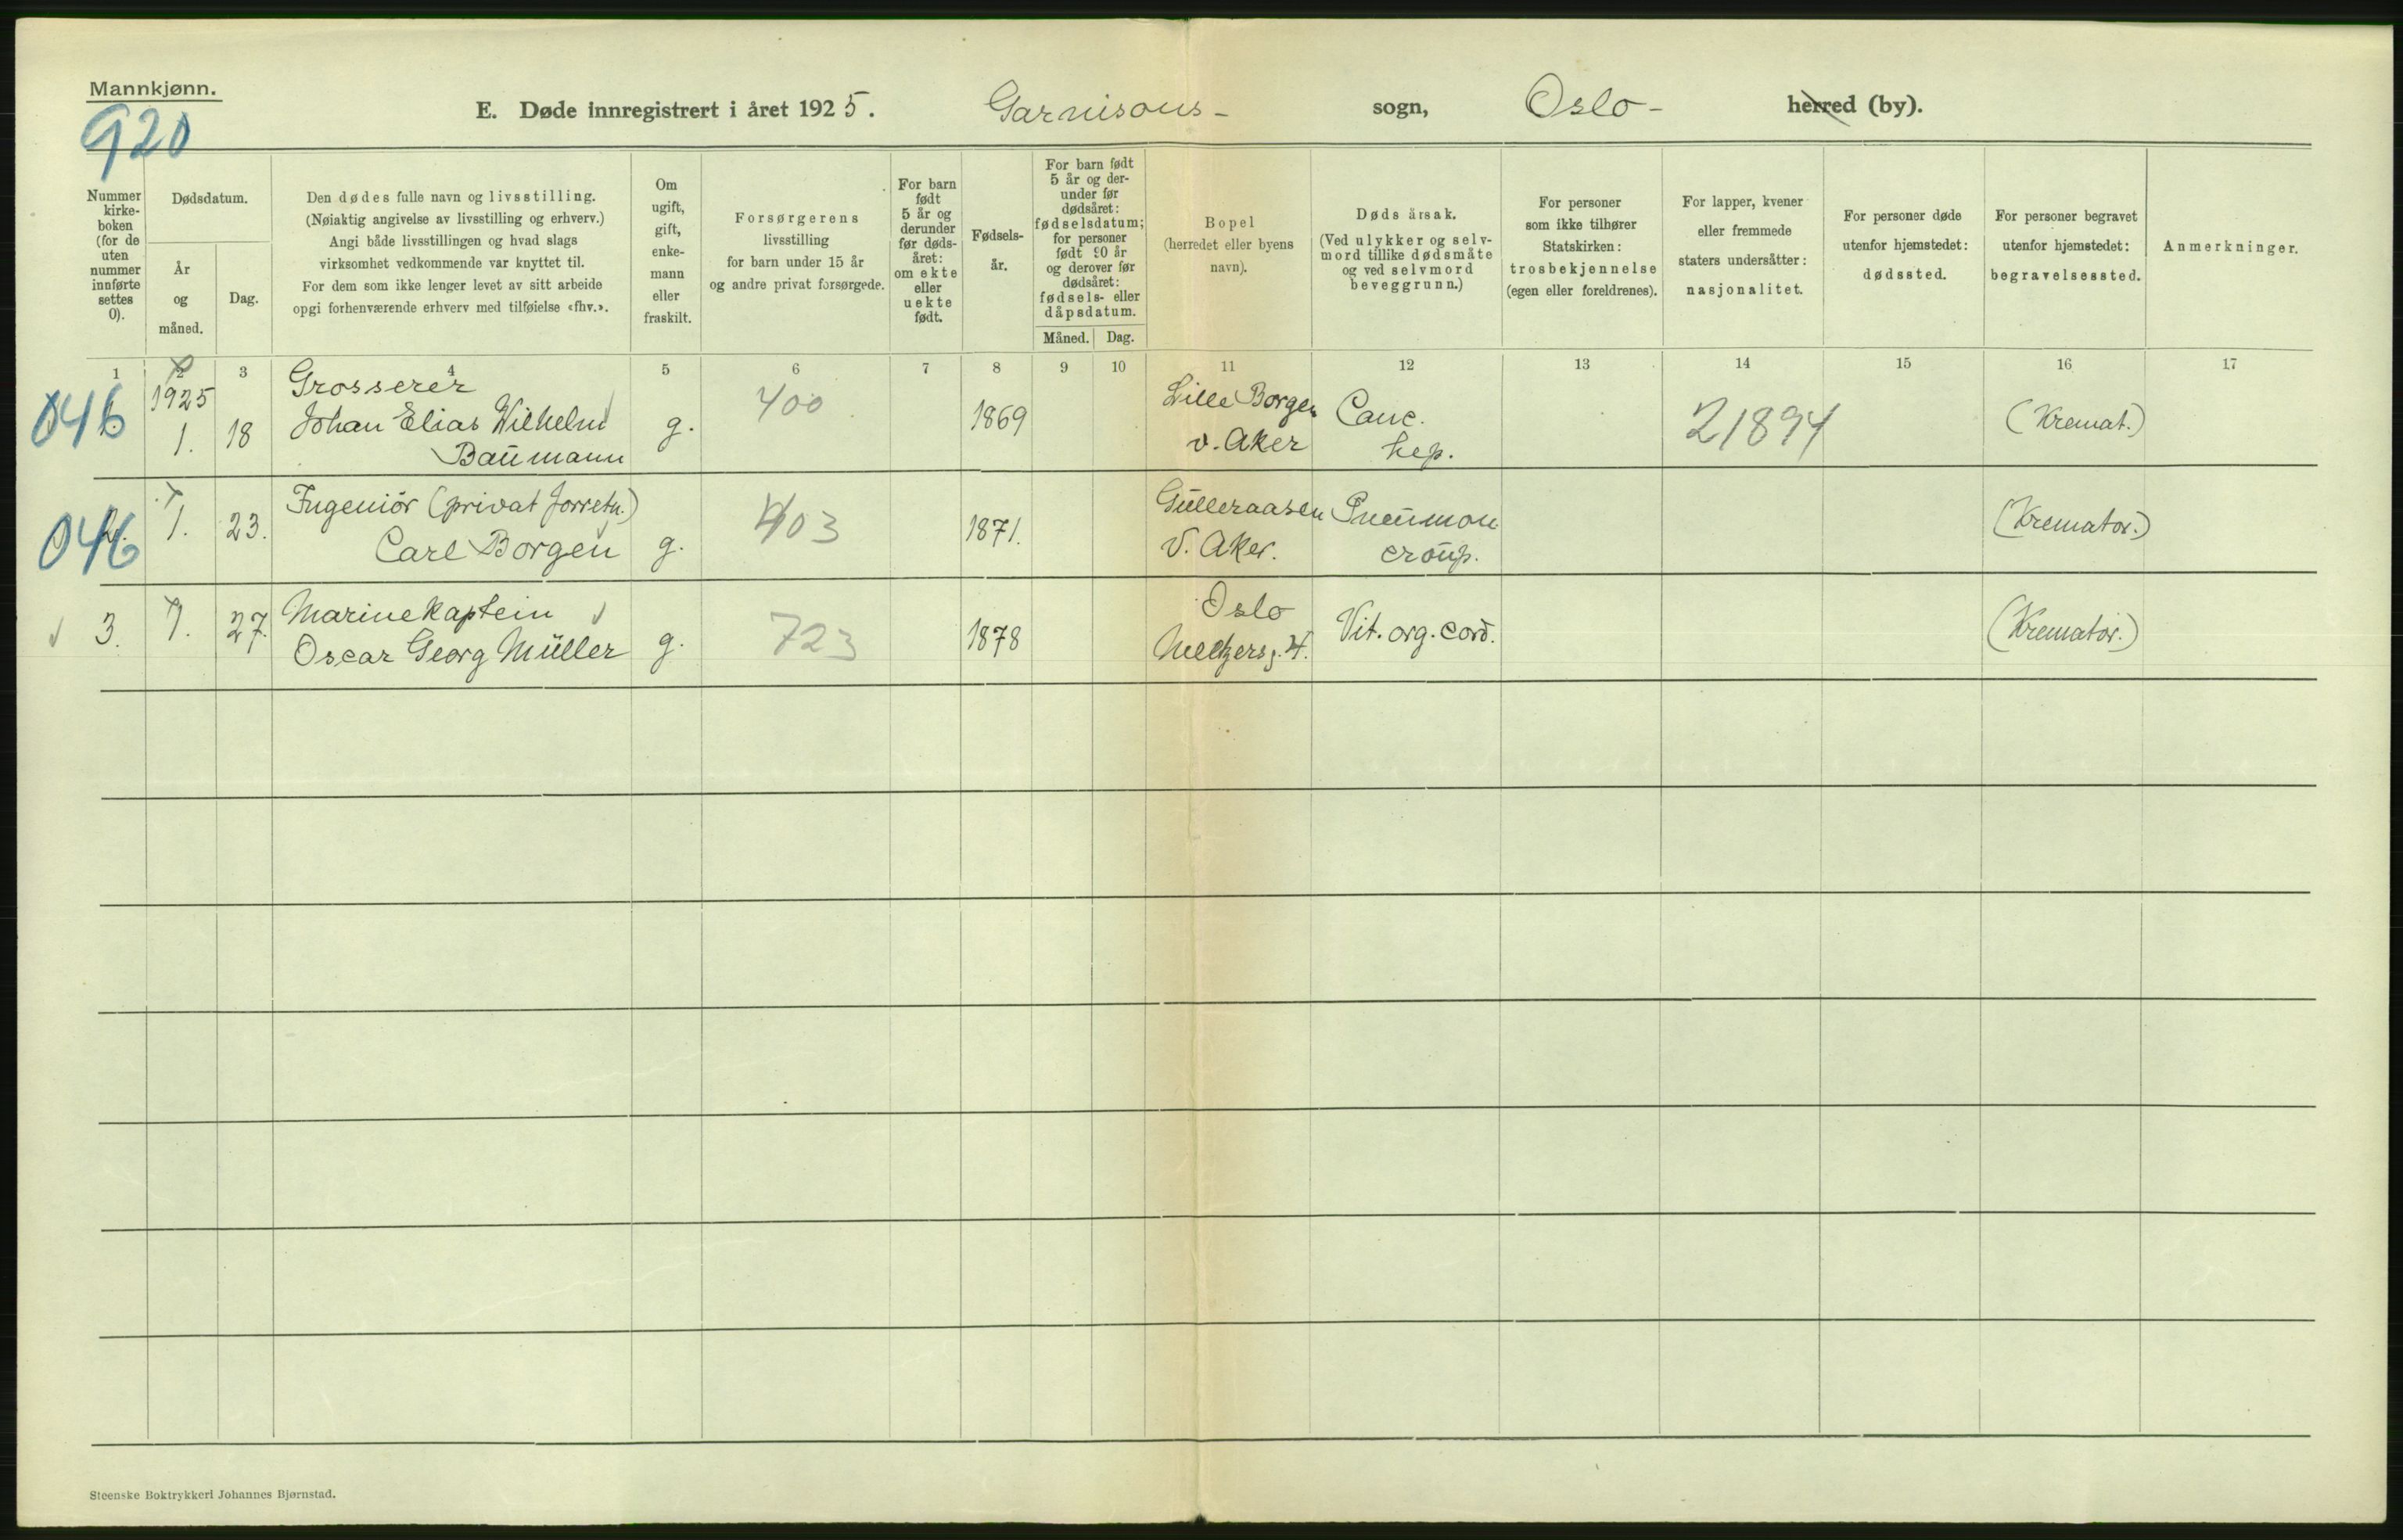 Mannkjønn.
920
E. Døde innregistrert i året 1925. Garnisons- sogn, Oslo- herred (by).
Nummer kirke-boken (for de uten nummer innførte settes 0).
Dødsdatum.
År og måned.
Dag.
Den dødes fulle navn og livsstilling.
(Nøiaktig angivelse av livsstilling og erhverv.)
Angi både livsstillingen og hvad slags
virksomhet vedkommende var knyttet til.
For dem som ikke lenger levet av sitt arbeide
opgi forhenværende erhverv med tilføielse «fhv.».
Om ugift, gift, enke-mann eller fraskilt.
Forsørgerens
livsstilling
for barn under 15 år
og andre privat forsørgede.
For barn født 5 år og derunder før døds-året: om ekte eller uekte født.
Fødsels-år.
For barn født 5 år og der-under før dødsåret: fødselsdatum; for personer født 90 år og derover før dødsåret: fødsels- eller dåpsdatum.
Måned. Dag.
Bopel
(herredet eller byens
navn).
Dødsårsak.
(Ved ulykker og selv-
mord tillike dødsmåte
og ved selvmord
beveggrunn.)
For personer
som ikke tilhører
Statskirken:
trosbekjennelse
(egen eller foreldrenes).
For lapper, kvener
eller fremmede
staters undersåtter:
nasjonalitet.
For personer døde
utenfor hjemstedet:
dødssted.
For personer begravet
utenfor hjemstedet:
begravelsessted.
Anmerkninger.
1 2 3 4 5 6 7 8 9 10 11 12 13 14 15 16 17
046 1925 Grosserer 400 Lille Borgen Canc. 21894 (Kremat.)
1. 18 Johan Elias Wilhelm g. 1869 v. Aker hep.
Baumann
046 2. 1. 23. Ingeniör (privat forretn.) 403 1871. Gulleraasen Pneumon (Kremator.)
Carl Borgen g. V. Aker. croup.
3. 1. 27. Marinekaptein 723 1878 Oslo Vit. org. cord. (Kremator.)
Oscar Georg Müller g. Meltzersg. 4.
Steenske Boktrykkeri Johannes Bjørnstad.